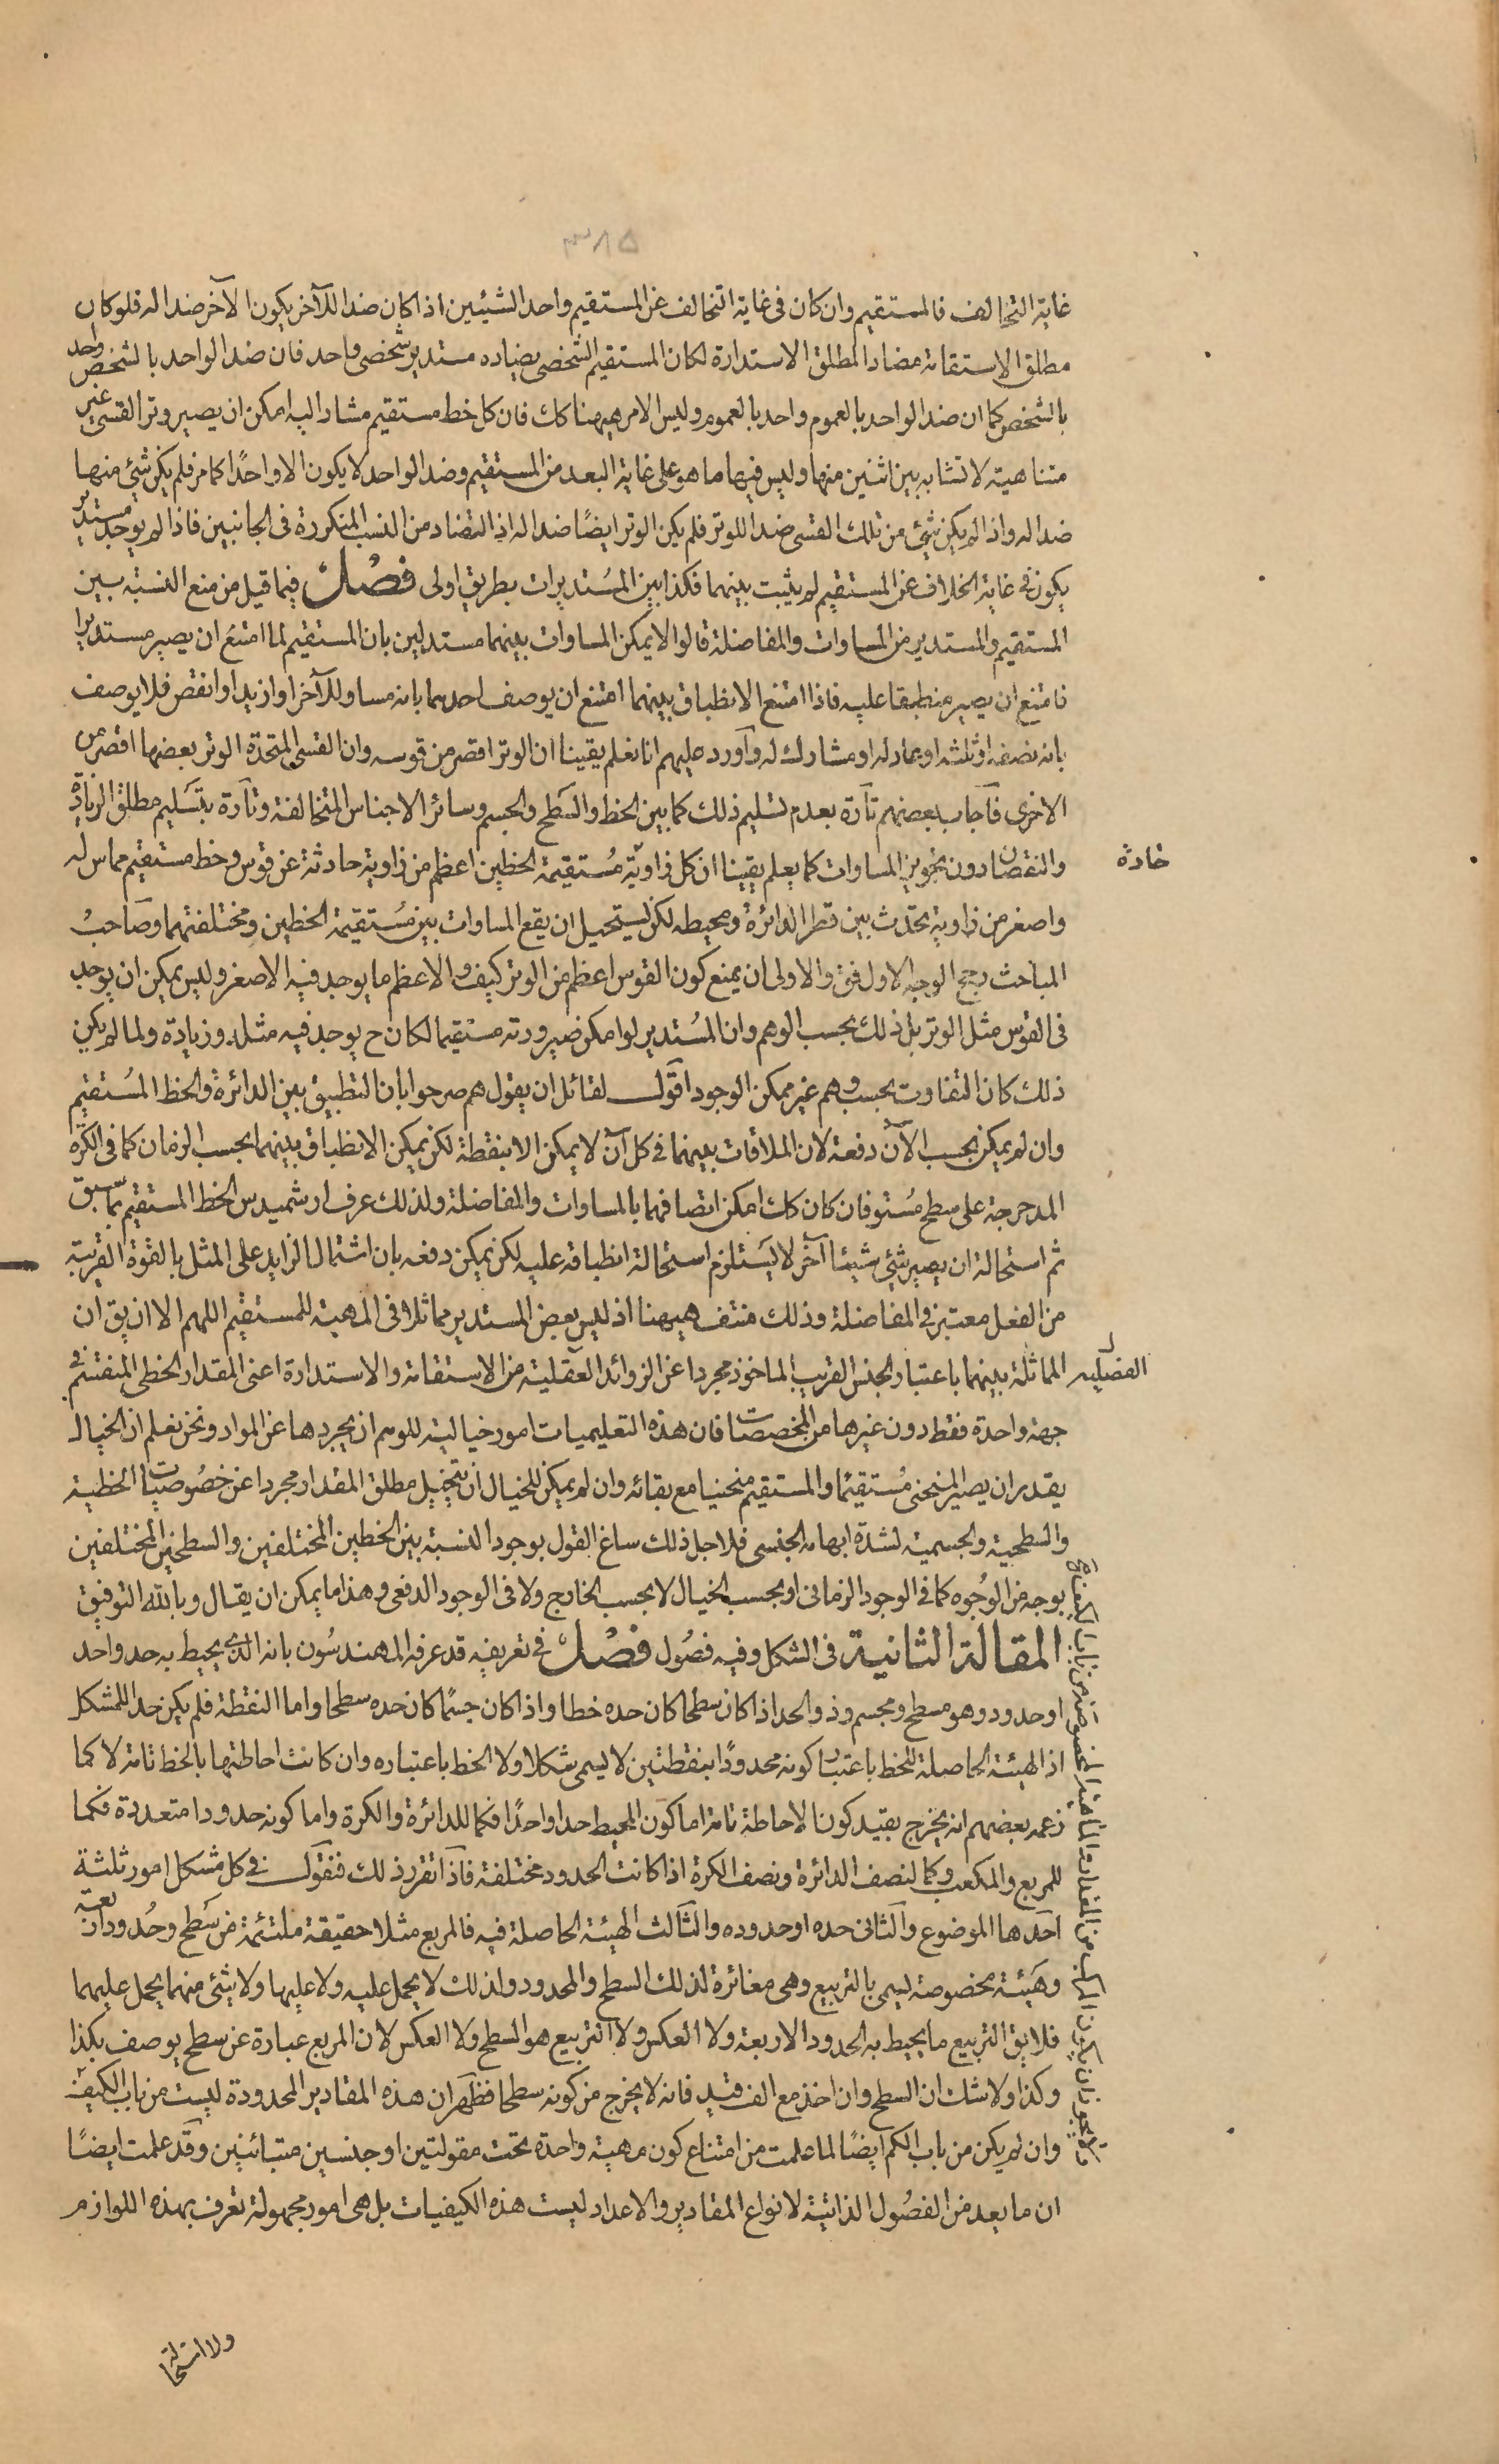 ٣٨٥
غاية التخالف فالمستقيم وان كان فى غاية التخالف عن المستقيم واحد الشيئين اذا كان ضدا للآخر يكون الآخر ضدا له فلو كان
مطلق الاستقامة مضادا لمطلق الاستدارة لكان المستقيم الشخصى يضاده مستدير شخصى واحد فان ضد الواحد بالشخص واحد
بالشخص كما ان ضد الواحد بالعموم واحد بالعموم وليس الامر هيهنا كك فان كل خط مستقيم مشار اليه امكن ان يصير وتر القسى غير
متناهية لا تشابه بين اثنين منها وليس فيها ما هو على غاية البعد من المستقيم وضد الواحد لا يكون الا واحدًا كما مر فلم يكن شئ منها
ضدا له واذا لم يكن شئ من تلك القسى ضدا للوتر فلم يكن الوتر ايضًا ضدا له اذ التضاد من النسب المتكررة فى الجانبين فاذا لم يوجد مستدير
يكون فى غاية الخلاف عن المستقيم لم يثبت بينهما فكذا بين المستديرات بطريق اولى فصل فيما قيل من منع النسبة بين
المستقيم والمستدير من المساوات والمفاضلة قالوا لا يمكن المساوات بينهما مستدلين بان المستقيم لما امتنع ان يصير مستديرا
فامتنع ان يصير منطبقا عليه فاذا امتنع الانطباق بينهما امتنع ان يوصف احدهما بانه مساو للآخر او ازيد او انقص فلا يوصف
بانه نصفه او ثلثه او عاد له او مشارك له وآورد عليهم انا نعلم يقينا ان الوتر اقصر من قوسه وان القسى المتحدة الوتر بعضها اقصر من
الاخرى فآجاب بعضهم تآرة بعدم تسليم ذلك كما بين الخط والسطح والجسم وسائر الاجناس المتخالفة وتآرة بتسليم مطلق الزيادة
والنقصان دون تجويز المساوات كما يعلم يقينا ان كل زاوية مستقيمة الخطين اعظم من زاوية حادثة عن قوس وخط مستقيم مماس له
حادة
واصغر من زاوية تحدث بين قطر الدائرة ومحيطه لكن يستحيل ان يقع المساوات بين مستقيمة الخطين ومختلفتهما وصاحب
المباحث رجح الوجه الاول فق والاولى ان يمنع كون القوس اعظم من الوتر كيف والاعظم ما يوجد فيه الاصغر وليس يمكن ان يوجد
فى القوس مثل الوتر بل ذلك بحسب الوهم وان المستدير لو امكن صيرورته مستقيما لكان ح يوجد فيه مثله وزيادة ولما لم يكن
ذلك كان التفاوت بحسب وهم غير ممكن الوجود اقول لقائل ان يقول هم صرحوا بان التطبيق بين الدائرة والخط المستقيم
وان لم يمكن بحسب الآن دفعة لان الملاقات بينهما فى كل آن لا يمكن الا بنقطة لكن يمكن الانطباق بينهما بحسب الزمان كما فى الكرة
المدحرجة على سطح مستو فان كان كك امكن اتصافهما بالمساوات والمفاضلة ولذلك عرف ارشميدس الخط المستقيم بما سبق
ثم استحالة ان يصير شئ شيئا آخر لا يستلزم استحالة انطباقه عليه لكن يمكن دفعه بان اشتمال الزايد على المثل بالقوة القريبة
من الفعل معتبر فى المفاضلة وذلك منتف هيهنا اذ ليس بعض المستدير مماثلا فى المهية للمستقيم اللهم الا ان يق ان
المماثلة بينهما باعتبار الجنس القريب الماخوذ مجردا عن الزوائد العقلية من الاستقامة والاستدارة اعنى المقدار الخطى المنقسم فى
الفصلية
جهة واحدة فقط دون غيرها من المخصصات فان هذه التعليميات امور خيالية للوهم ان يجردها عن المواد ونحن نعلم ان الخيال
يقدر ان يصير المنحنى مستقيمًا والمستقيم منحنيا مع بقائه وان لم يمكن للخيال ان يتخيل مطلق المقدار مجردا عن خصوصيات الخطية
والسطحية والجسمية لشدة ابهامه الجنسى فلاجل ذلك ساغ القول بوجود النسبة بين الخطين المختلفين والسطحين المختلفين
بوجه من الوجوه كما فى الوجود الزمانى او بحسب الخيال لا بحسب الخارج ولا فى الوجود الدفعى وهذا ما يمكن ان يقال وبالله التوفيق
المقالة الثانية فى الشكل وفيه فصول فصل فى تعريفه قد عرفه المهندسون بانه الذى يحيط به حد واحد
او حدود وهو مسطح ومجسم وذو الحد اذا كان سطحا كان حده خطا واذا كان جسمًا كان حده سطحا واما النقطة فلم يكن حدا للمشكل
اذ الهيئة الحاصلة للخط باعتبار كونه محدودًا بنقطتين لا يسمى شكلا ولا الخط باعتباره وان كانت احاطتها بالخط تامة لا كما
زعمه بعضهم انه يخرج بقيد كون الاحاطة تامة اما كون المحيط حدا واحدًا فكما للدائرة والكرة واما كونه حدودا متعددة فكما
للمربع والمكعب وكما لنصف الدائرة ونصف الكرة اذا كانت الحدود مختلفة فآذا تقرر ذلك فنقول فى كل مشكل امور ثلثة
آحدها الموضوع وآلثانى حده او حدوده والثآلث الهيئة الحاصلة فيه فالمربع مثلا حقيقة ملتئمة من سطح وحدود اربعة
وهيئة مخصوصة يسمى بالتربيع وهى مغائرة لذلك السطح والمحدود ولذلك لا يحمل عليه ولا عليها ولا شئ منهما يحمل عليهما
فلا يق التربيع ما يحيط به الحدود الاربعة ولا العكس ولا التربيع هو السطح ولا العكس لان المربع عبارة عن سطح يوصف بكذا
وكذا ولا شك ان السطح وان اخذ مع الف قيد فانه لا يخرج من كونه سطحا فظهر ان هذه المقادير المحدودة ليست من باب الكيف
وان لم يكن من باب الكم ايضًا لما علمت من امتناع كون مهية واحدة تحت مقولتين او جنسين متبائنين وقد علمت ايضًا
ان ما يعد من الفصول الذاتية لانواع المقادير والاعداد ليست هذه الكيفيات بل هى امور مجهولة تعرف بهذه اللوازم
ولا استحالة